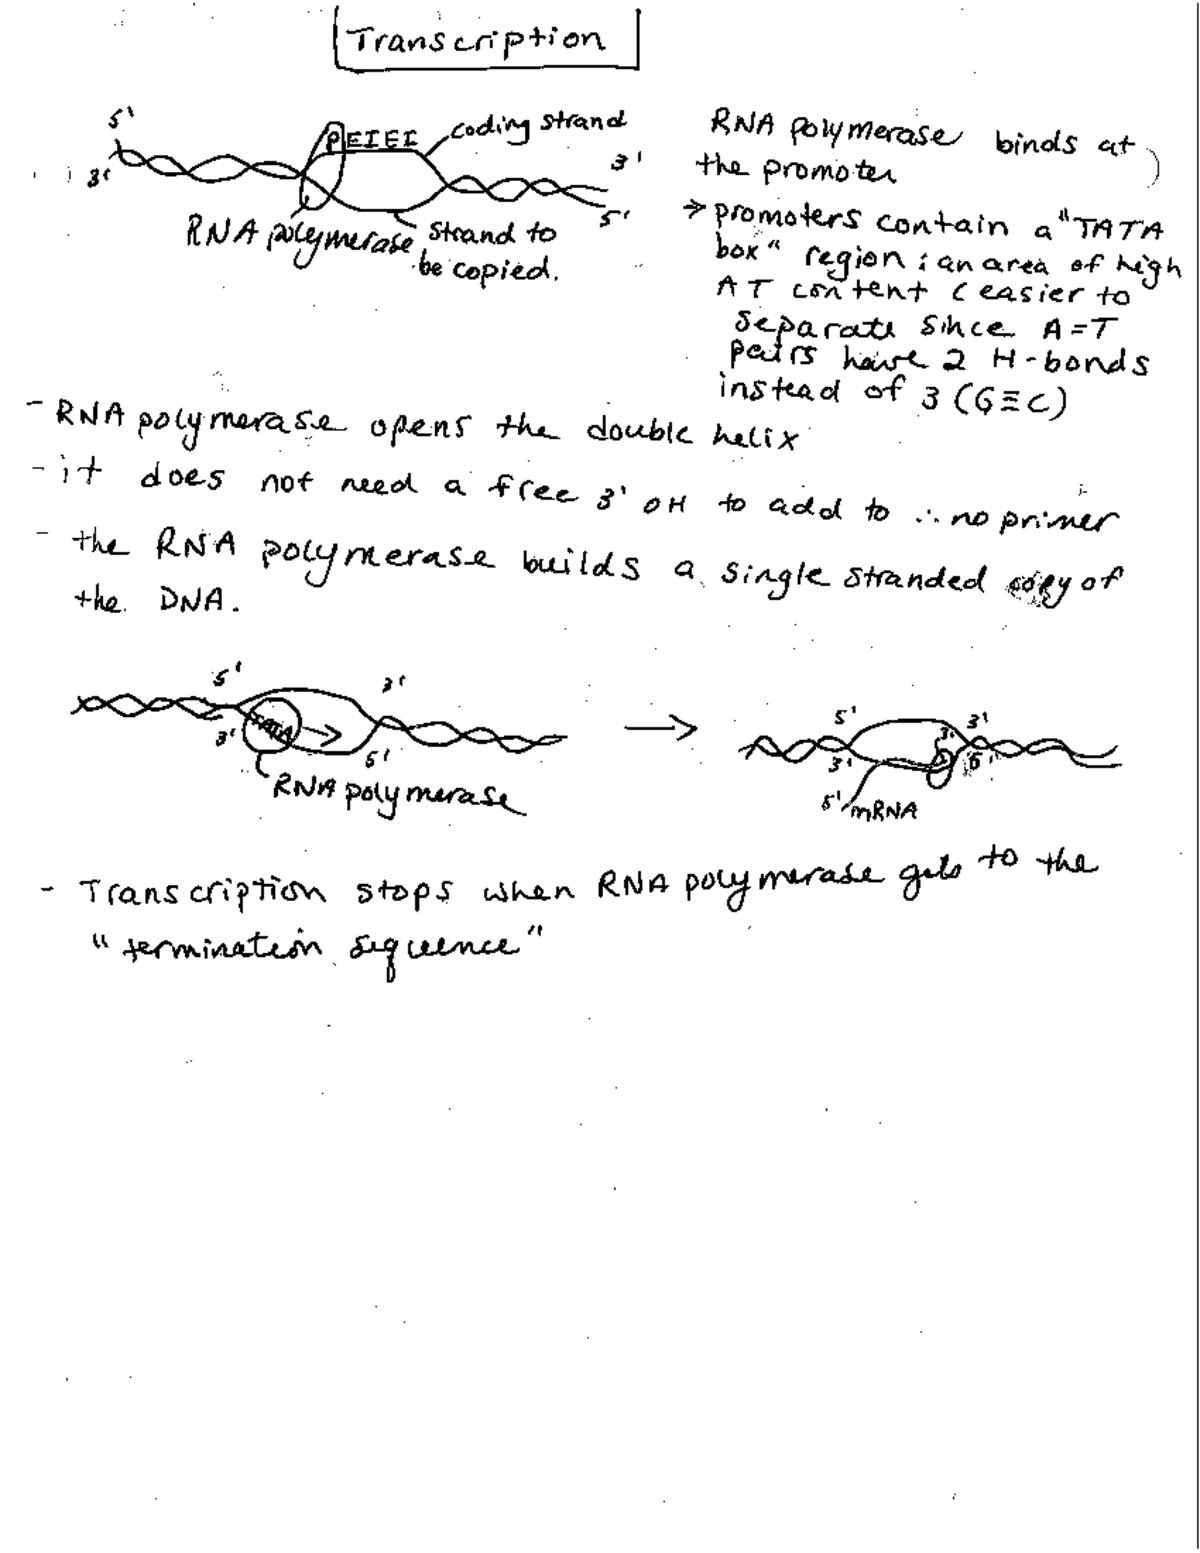 Transcription
5'
3'
PEIEI
coding strand
3'
5'
RNA polymerase
strand to
be copied.
RNA polymerase binds at
the promoter
→ promoters contain a "TATA
box" region : an area of high
AT content (easier to
separate since A=T
pairs have 2 H-bonds
instead of 3 (G≡C)
- RNA polymerase opens the double helix
- it does not need a free 3' OH to add to ∴ no primer
- the RNA polymerase builds a single stranded copy of
the DNA.
5'
3'
TATA
3'
5'
RNA polymerase
5'
3'
3'
3'
5'
5' mRNA
- Transcription stops when RNA polymerase gets to the
"termination sequence"